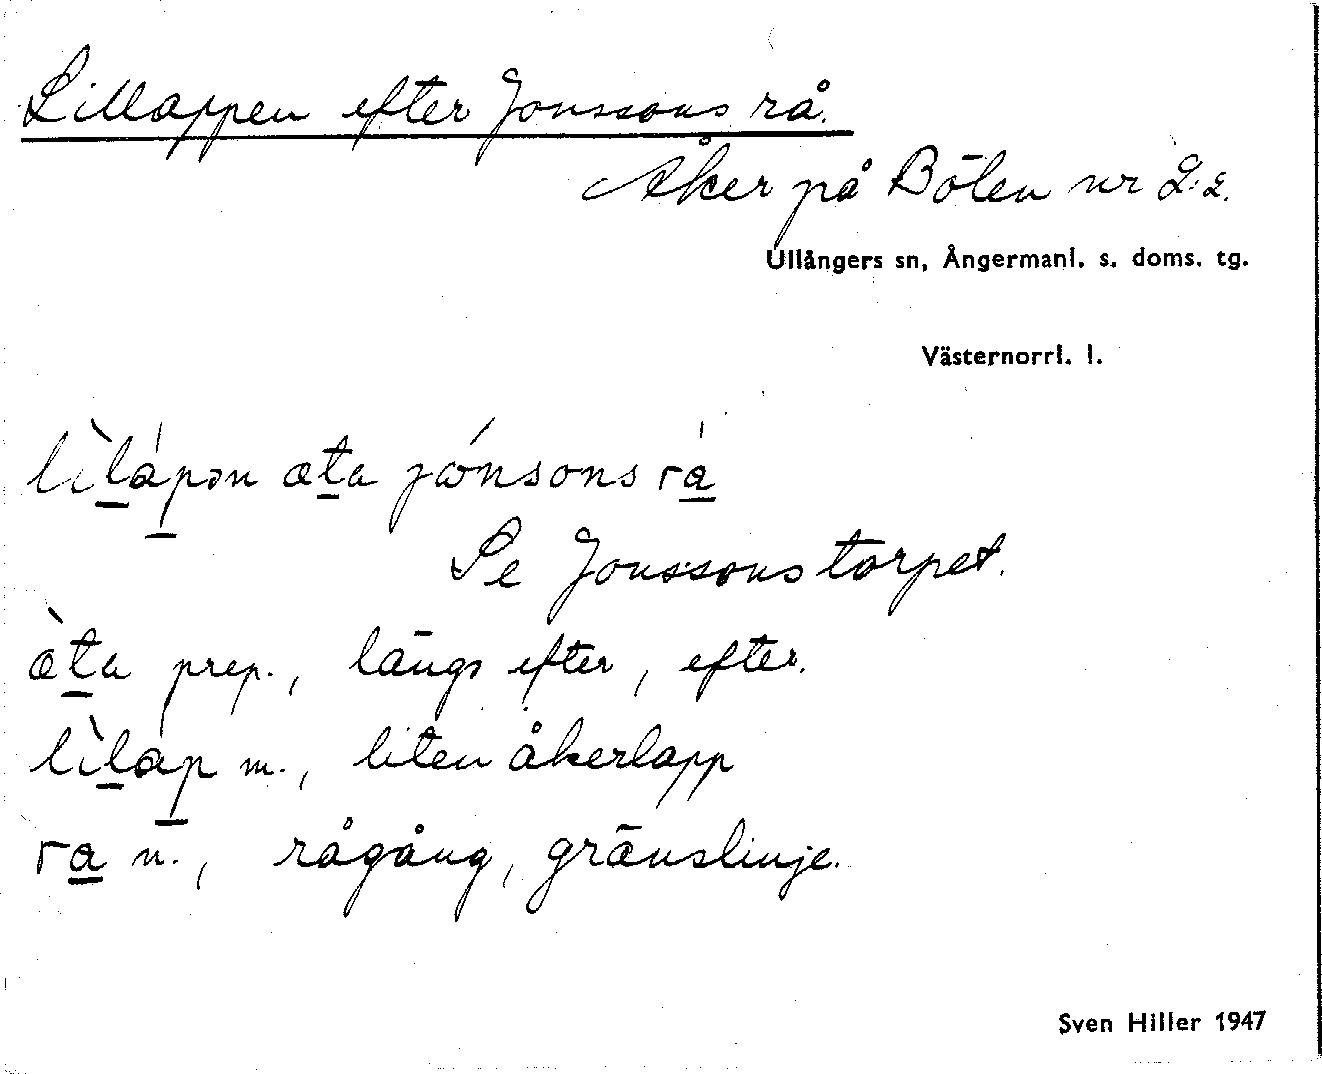 Lillappen efter Jonssons rå.
Åker på Bölen nr 2:2.
Ullångers sn, Ångermanl. s. doms. tg.
Västernorrl. l.
lìlápən æta jónsons rá
Se Jonssonstorpet.
æ̀ta prep., längs efter, efter.
lìlap m., liten åkerlapp
ra n., rågång, gränslinje.
Sven Hiller 1947